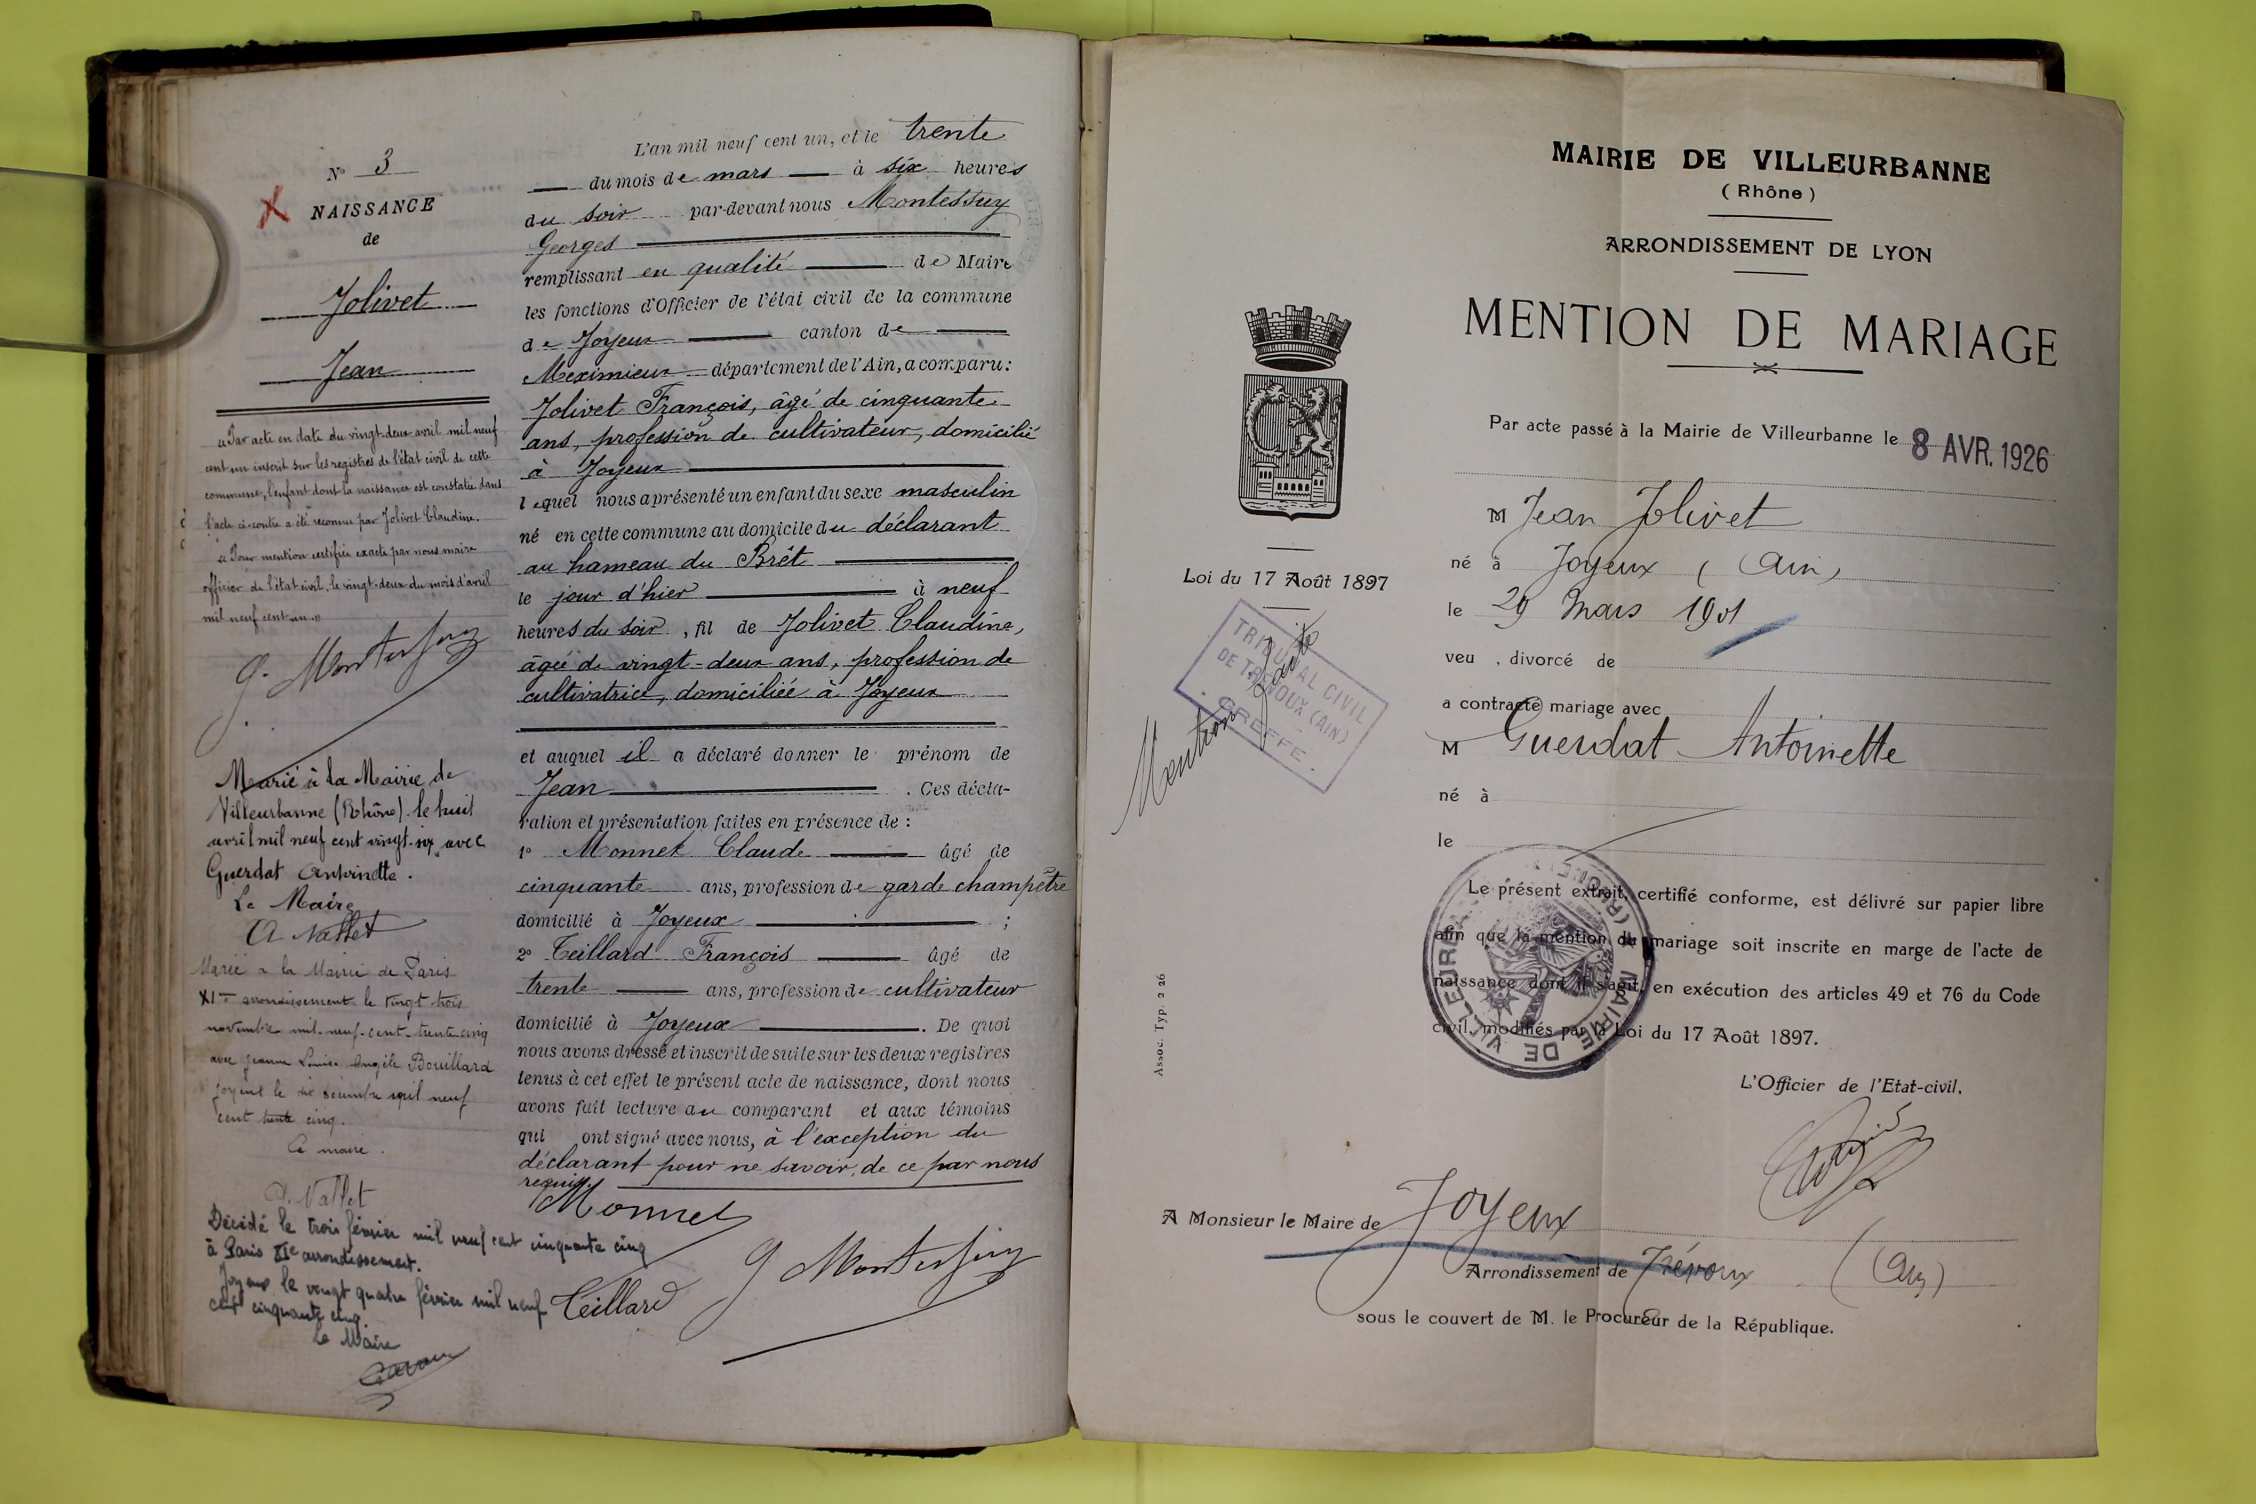 N° 3
NAISSANCE
de
Jolivet
Jean
« Par acte en date du vingt-deux avril mil neuf
cent un inscrit sur les registres de l'état civil de cette
commune, l'enfant dont la naissance est constatée dans
l'acte ci-contre a été reconnu par Jolivet Claudine.
« Pour mention certifiée exacte par nous maire
officier de l'état civil, le vingt-deux du mois d'avril
mil neuf cent un. »
G. Montessuy
Marié à la Mairie de
Villeurbanne (Rhône) le huit
avril mil neuf cent vingt-six avec
Guerdat Antoinette.
Le Maire
A Vallet
Marié à la Mairie de Paris
XIme arrondissement le vingt trois
novembre mil-neuf-cent-trente-cinq
avec Jeanne Louise Angèle Bouillard
Joyeux le dix décembre mil neuf
cent trente cinq.
Le maire.
A. Vallet
Décédé le trois février mil neuf cent cinquante cinq
à Paris XIe arrondissement.
Joyeux le vingt quatre février mil neuf
cent cinquante cinq.
Le Maire
L'an mil neuf cent un, et le trente
du mois de mars à six heures
du soir par-devant nous Montessuy
Georges
remplissant en qualité de Maire
les fonctions d'Officier de l'état civil de la commune
de Joyeux canton de
Meximieux département de l'Ain, a comparu:
Jolivet François, âgé de cinquante
ans, profession de cultivateur, domicilié
à Joyeux
lequel nous a présenté un enfant du sexe masculin
né en cette commune au domicile du déclarant
au hameau du Brêt
le jour d'hier à neuf
heures du soir, fil de Jolivet Claudine,
âgée de vingt-deux ans, profession de
cultivatrice, domiciliée à Joyeux
et auquel il a déclaré donner le prénom de
Jean . Ces décla-
ration et présentation faites en présence de :
1° Monnet Claude âgé de
cinquante ans, profession de garde champêtre
domicilié à Joyeux ;
2° Teillard François âgé de
trente ans, profession de cultivateur
domicilié à Joyeux . De quoi
nous avons dressé et inscrit de suite sur les deux registres
tenus à cet effet le présent acte de naissance, dont nous
avons fait lecture au comparant et aux témoins
qui ont signé avec nous, à l'exception du
déclarant pour ne savoir, de ce par nous
requis.
Monnet
G Montessuy
Teillard
MAIRIE DE VILLEURBANNE
(Rhône)
ARRONDISSEMENT DE LYON
MENTION DE MARIAGE
Loi du 17 Août 1897
TRIBUNAL CIVIL
DE TREVOUX (AIN)
. GREFFE .
Mention faite
Assoc. Typ. 2 26
Par acte passé à la Mairie de Villeurbanne le 8 AVR. 1926
M Jean Jolivet
né à Joyeux (Ain)
le 29 Mars 1901
veu , divorcé de
a contracté mariage avec
M Guerdat Antoinette
né à
le
Le présent extrait, certifié conforme, est délivré sur papier libre
afin que la mention du mariage soit inscrite en marge de l'acte de
naissance dont il s'agit, en exécution des articles 49 et 76 du Code
civil, modifiés par la Loi du 17 Août 1897.
MAIRIE DE VILLEURBANNE (RHONE)
L'Officier de l'Etat-civil,
A Monsieur le Maire de Joyeux
Arrondissement de Trévoux (Ain)
sous le couvert de M. le Procureur de la République.